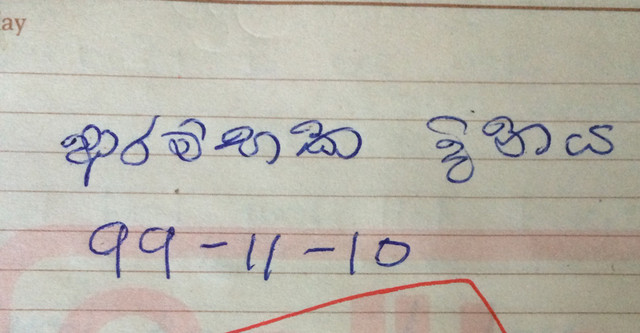 ay
ආරම්භක දිනය
99-11-10